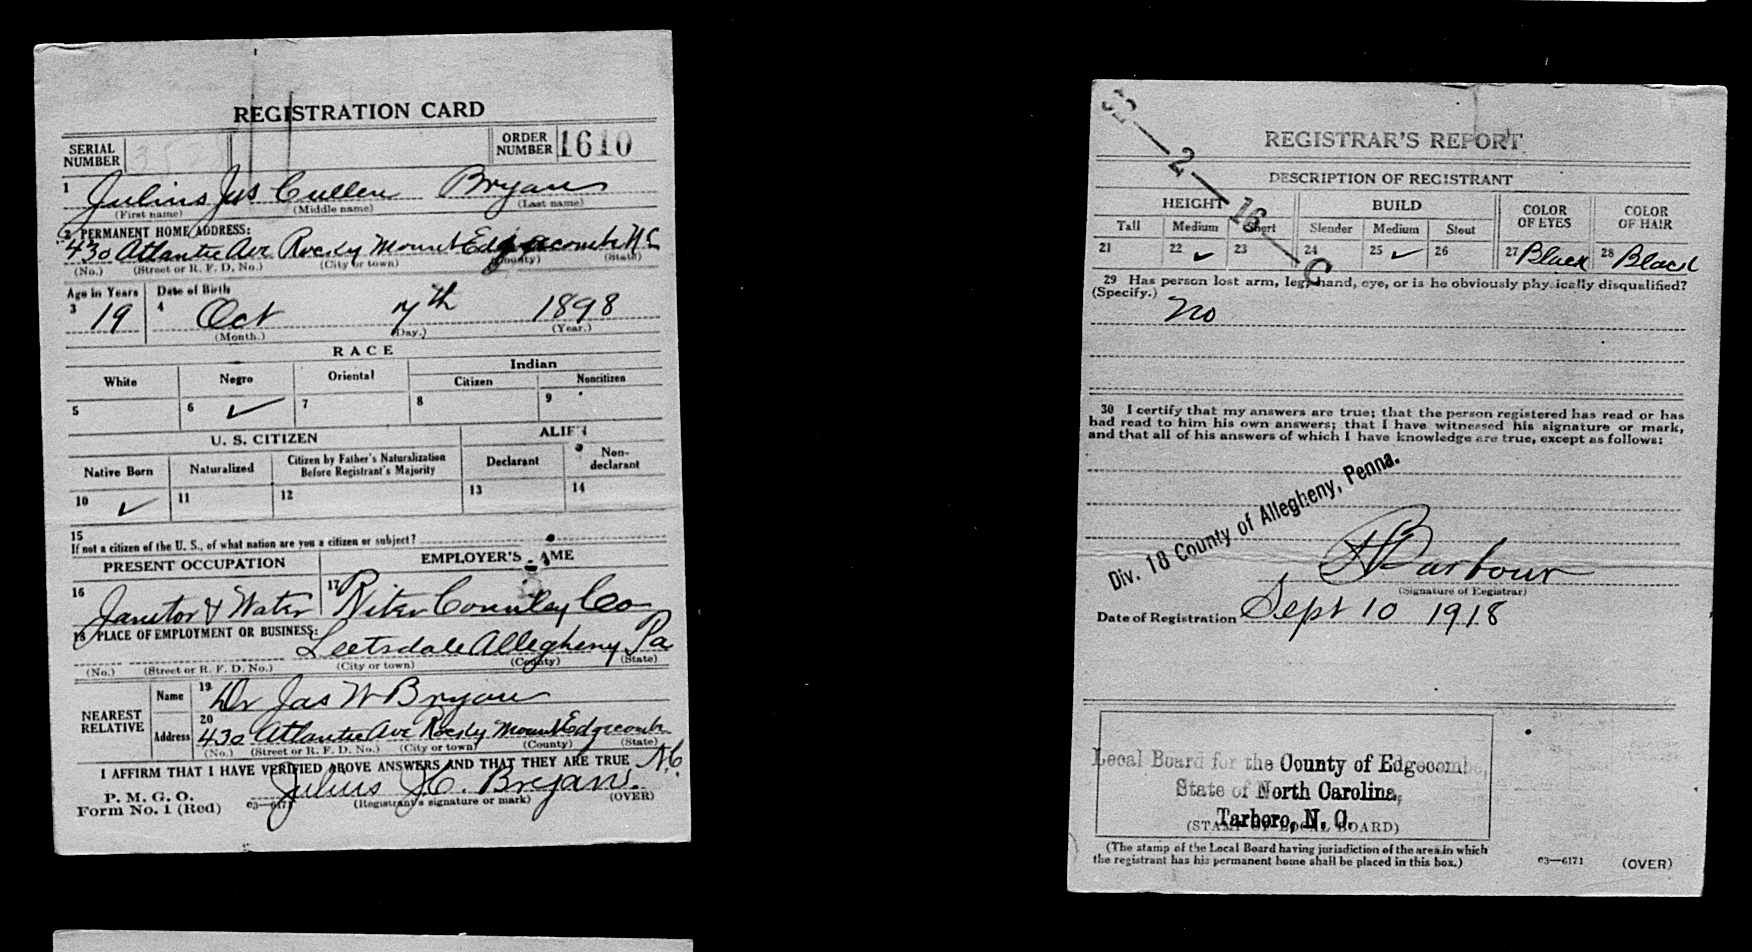 REGISTRATION CARD
SERIAL NUMBER
ORDER NUMBER 1610
1 Julius Jas Cullen Bryan
(First name) (Middle name) (Last name)
2 PERMANENT HOME ADDRESS:
430 Atlantic Ave Rocky Mount Edgecombe N C
(No.) (Street or R. F. D. No.) (City or town) (County) (State)
Age in Years Date of Birth
3 19 4 Oct 7th 1898
(Month.) (Day.) (Year.)
RACE
White Negro Oriental Indian
Citizen Noncitizen
5 6 ✓ 7 8 9
U. S. CITIZEN ALIEN
Native Born Naturalized Citizen by Father's Naturalization Before Registrant's Majority Declarant Non-declarant
10 ✓ 11 12 13 14
15
If not a citizen of the U. S., of what nation are you a citizen or subject?
PRESENT OCCUPATION EMPLOYER'S NAME
16 Janitor & Water 17 Riter Conley Co
18 PLACE OF EMPLOYMENT OR BUSINESS:
Leetsdale Allegheny Pa
(No.) (Street or R. F. D. No.) (City or town) (County) (State)
NEAREST RELATIVE
Name 19 Dr Jas W Bryan
Address 20 430 Atlantic Ave Rocky Mount Edgecombe
(No.) (Street or R. F. D. No.) (City or town) (County) (State)
N.C.
I AFFIRM THAT I HAVE VERIFIED ABOVE ANSWERS AND THAT THEY ARE TRUE
Julius J.C. Bryan.
P. M. G. O.
Form No. 1 (Red) c3—6171 (Registrant's signature or mark) (OVER)
32—2—16—C
REGISTRAR'S REPORT
DESCRIPTION OF REGISTRANT
HEIGHT BUILD COLOR OF EYES COLOR OF HAIR
Tall Medium Short Slender Medium Stout
21 22 ✓ 23 24 25 ✓ 26 27 Black 28 Black
29 Has person lost arm, leg, hand, eye, or is he obviously physically disqualified?
(Specify.) No
30 I certify that my answers are true; that the person registered has read or has
had read to him his own answers; that I have witnessed his signature or mark,
and that all of his answers of which I have knowledge are true, except as follows:
Div. 18 County of Allegheny, Penna.
Barbour
(Signature of Registrar)
Date of Registration Sept 10 1918
Local Board for the County of Edgecombe,
State of North Carolina,
Tarboro, N. C.
(STAMP OF LOCAL BOARD)
(The stamp of the Local Board having jurisdiction of the area in which
the registrant has his permanent home shall be placed in this box.)
c3—6171 (OVER)